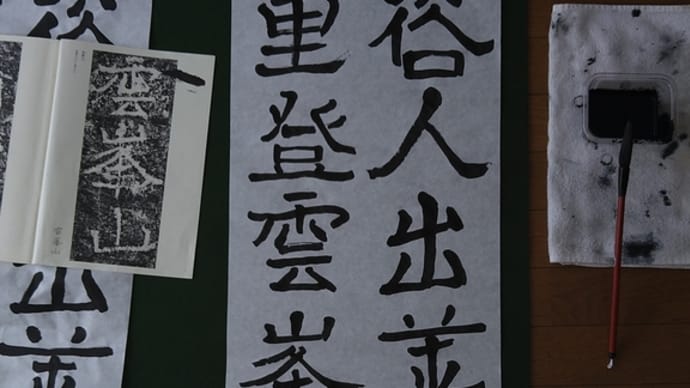 俗人出
里登雲峯
雲峯山
雲峯山
出